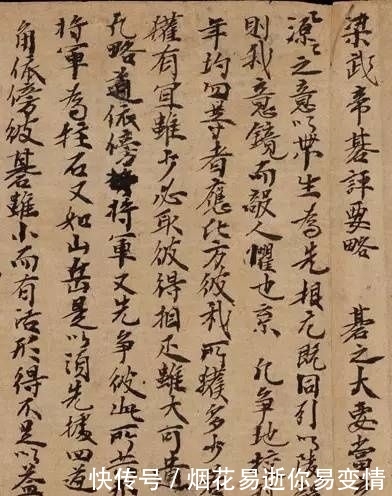 梁武帝棊評要略　棊之大要當
源之意以生為先根元既固引以
則我意鏡而敵人懼也　凡爭地
年均四等者應比方彼我所獲多少
獲有冝雖少必取彼得相延雖大可
凡略道依傍將軍又先爭彼此所
將軍為柱石又如山岳是以須先據四道
角依傍彼棊雖小而有活形得不足以益
快传号 / 烟花易逝你易变情